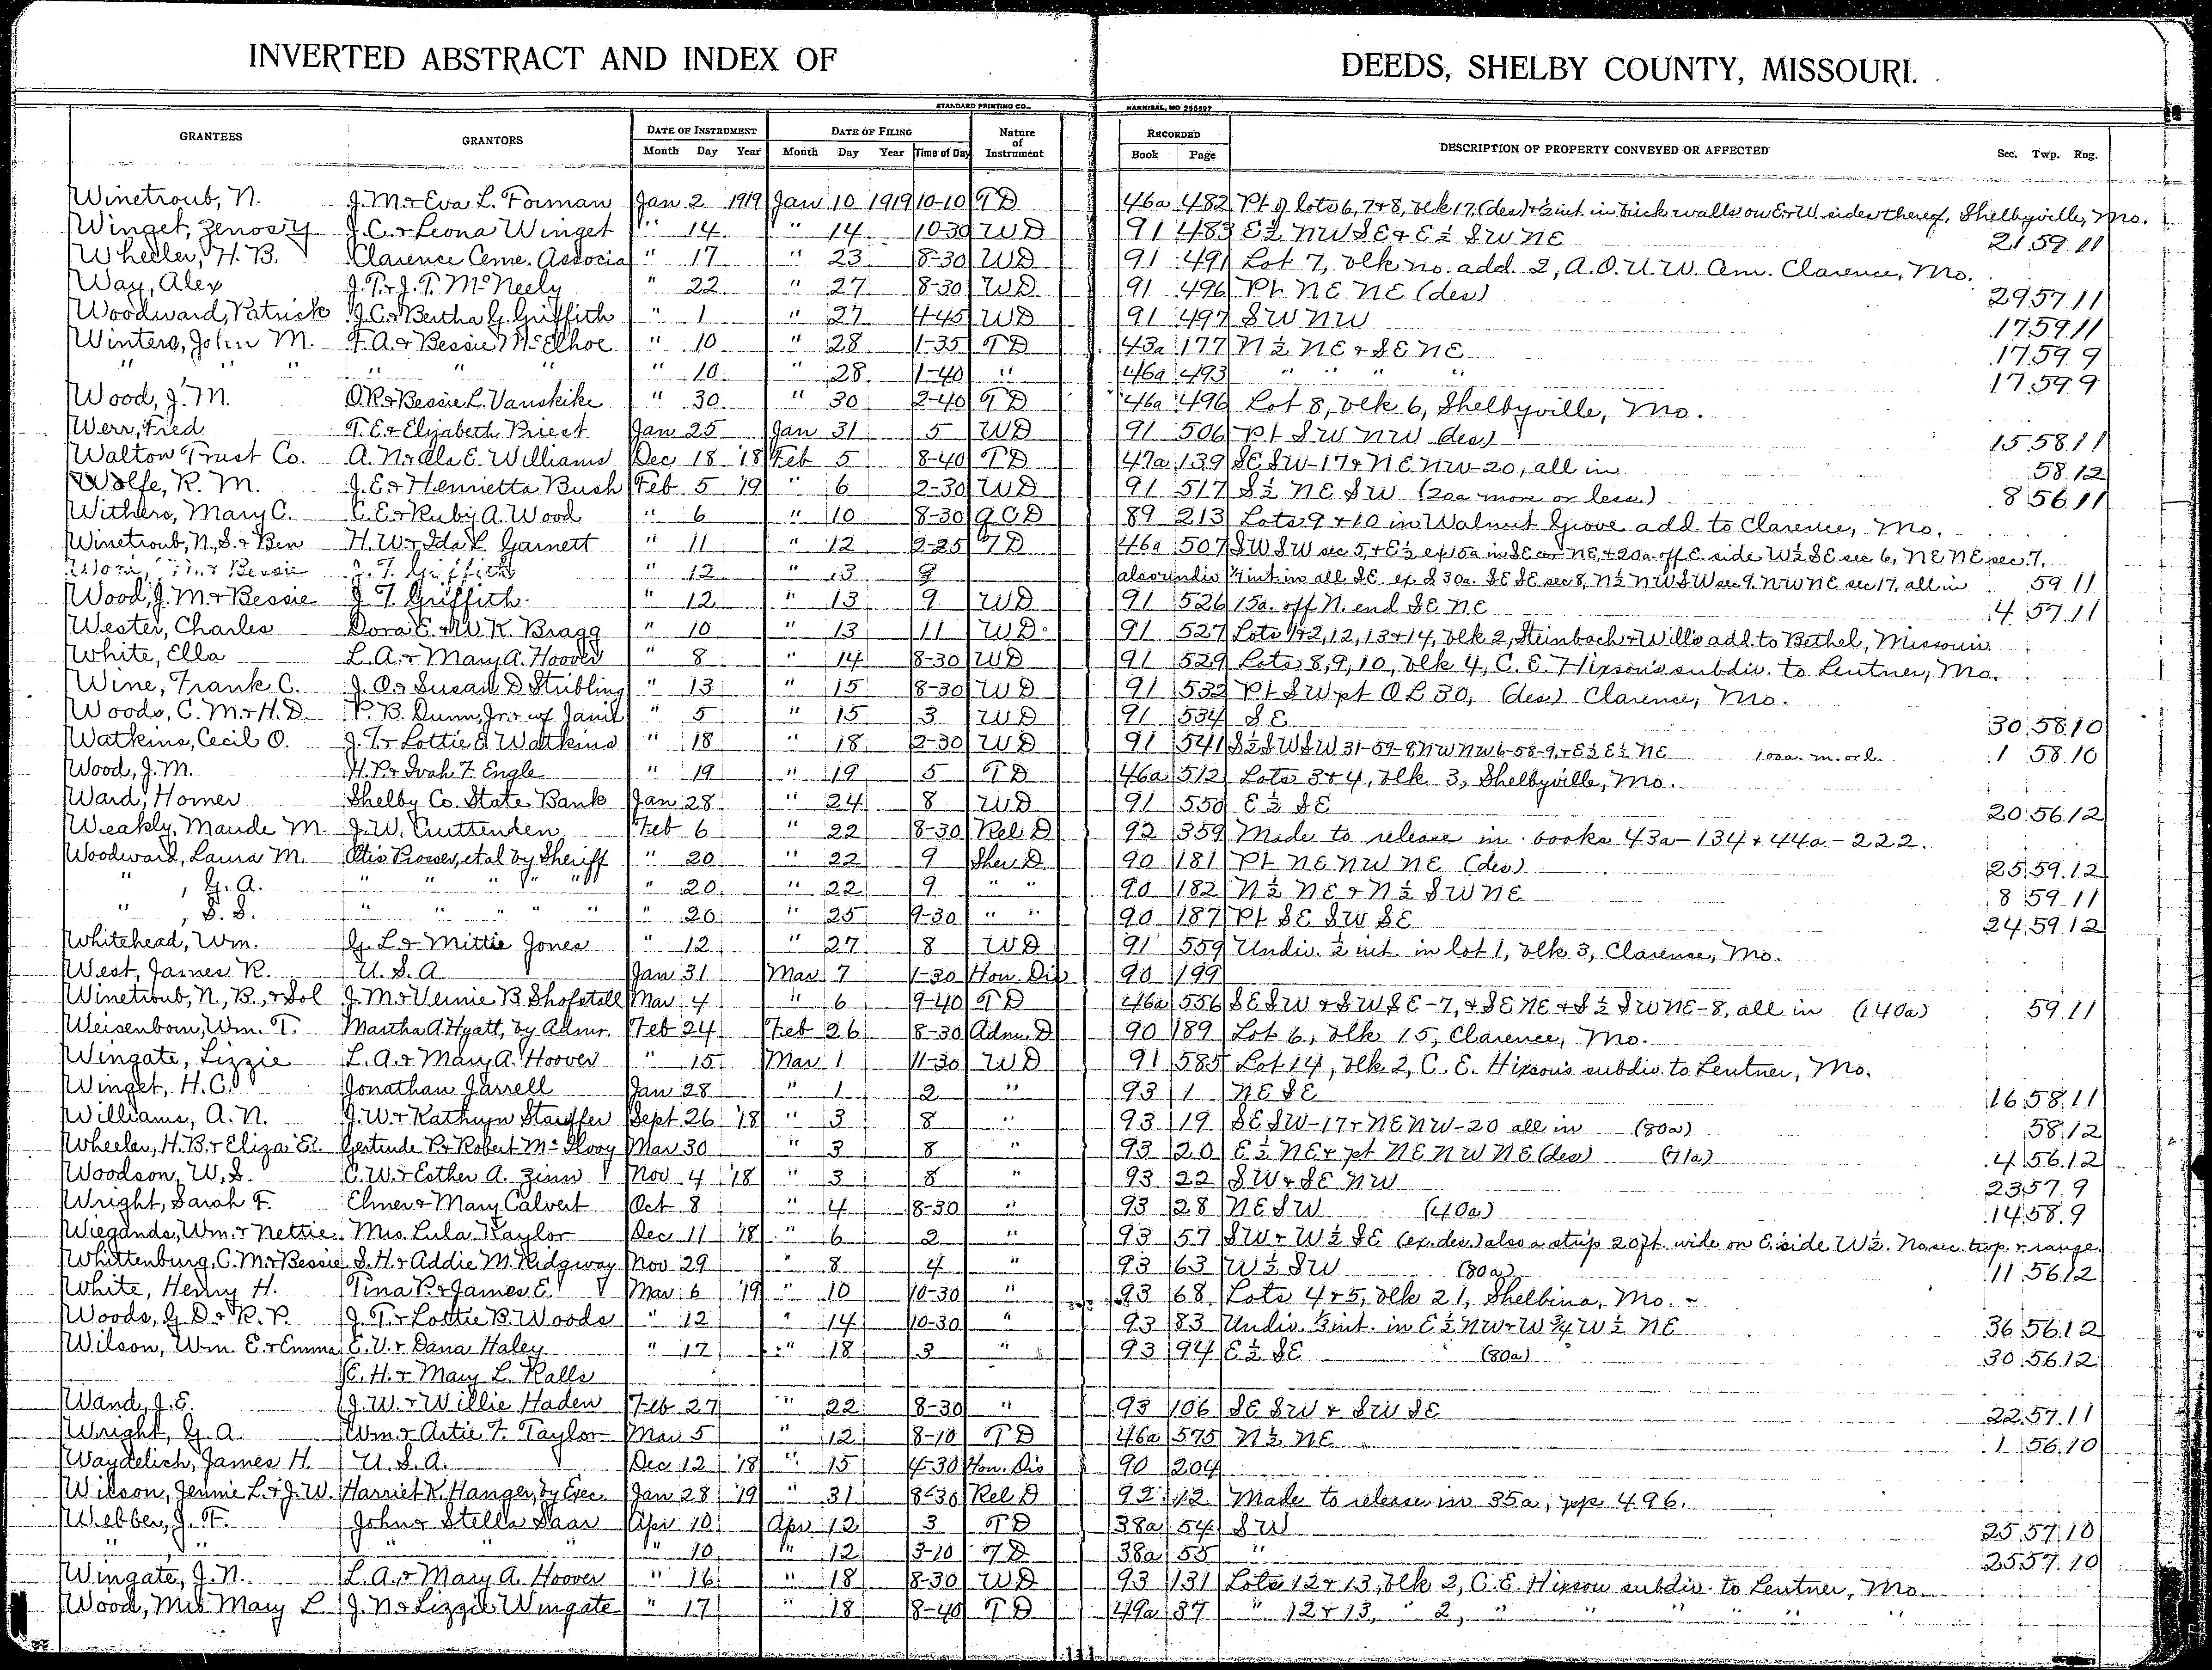 INVERTED ABSTRACT AND INDEX OF DEEDS, SHELBY COUNTY, MISSOURI.
STANDARD PRINTING CO., HANNIBAL, MO 255527
GRANTEES GRANTORS DATE OF INSTRUMENT DATE OF FILING Nature of Instrument RECORDED DESCRIPTION OF PROPERTY CONVEYED OR AFFECTED Sec. Twp. Rng.
Month Day Year Month Day Year Time of Day Book Page
Winetroub, N. J. M. & Eva L. Forman Jan 2 1919 Jan 10 1919 10-10 TD 46a 482 Pt of lots 6, 7 & 8, blk 17, (des) & ½ int. in brick walls on E & W sides thereof, Shelbyville, Mo.
Winget, Zenos Y. J. C. & Leona Winget " 14 " 14 10-30 WD 91 483 E½ NW SE & E½ SW NE 21 59 11
Wheeler, H. B. Clarence Ceme. Associa " 17 " 23 8-30 WD 91 491 Lot 7, blk no. add. 2, A.O.U.W. Cem. Clarence, Mo.
Way, Alex J. T. & J. T. McNeely " 22 " 27 8-30 WD 91 496 Pt NE NE (des) 29 57 11
Woodward, Patrick J. C. & Bertha G. Griffith " 1 " 27 4-45 WD 91 497 SW NW 17 59 11
Winters, John M. F. A. & Bessie McElhoe " 10 " 28 1-35 TD 43a 177 N½ NE & SE NE 17 59 9
" " " " " " " 10 " 28 1-40 " 46a 493 " " " " 17 59 9
Wood, J. M. O. R. & Bessie L. Vanskike " 30 " 30 2-40 TD 46a 496 Lot 8, blk 6, Shelbyville, Mo.
Werr, Fred T. E. & Elizabeth Priest Jan 25 Jan 31 5 WD 91 506 Pt SW NW (des) 15 58 11
Walton Trust Co. A. N. & Ola E. Williams Dec 18 '18 Feb 5 8-40 TD 47a 139 SE SW-17 & NE NW-20, all in 58 12
Wolfe, R. M. J. E. & Henrietta Bush Feb 5 '19 " 6 2-30 WD 91 517 S½ NE SW (20a more or less.) 8 56 11
Withers, Mary C. C. E. & Ruby A. Wood " 6 " 10 8-30 QCD 89 213 Lots 9 & 10 in Walnut Grove add. to Clarence, Mo.
Winetroub, N., S. & Ben H. W. & Ida L. Garnett " 11 " 12 2-25 TD 46a 507 SW SW sec 5, & E½ ex 15a in SE cor NE, & 20a off E. side W½ SE sec 6, NE NE sec 7,
J. T. Griffith " 12 " 13 9 also undiv ¼ int. in all SE ex S 30a. SE SE sec 8, N½ NW SW sec 9. NW NE sec 17, all in 59 11
Wood, J. M. & Bessie J. T. Griffith " 12 " 13 9 WD 91 526 15a. off N. end SE NE 4 57 11
Wester, Charles Dora E. & W. K. Bragg " 10 " 13 11 WD 91 527 Lots 1 & 2, 12, 13 & 14, blk 2, Steinbach & Wills add. to Bethel, Missouri
White, Ella L. A. & Mary A. Hoover " 8 " 14 8-30 WD 91 529 Lots 8, 9, 10, blk 4, C. E. Hixson's subdiv. to Lentner, Mo.
Wine, Frank C. J. O. & Susan D. Stribling " 13 " 15 8-30 WD 91 533 Pt SW pt OL 30, (des) Clarence, Mo.
Woods, C. M. & H. D. P. B. Dunn, Jr. & wf Janie " 5 " 15 3 WD 91 534 SE 30 58 10
Watkins, Cecil O. J. T. & Lottie E Watkins " 18 " 18 2-30 WD 91 541 S½ SW SW 31-59-9 NW NW 6-58-9, & E½ E½ NE 100a. m. or l. 1 58 10
Wood, J. M. H. P. & Ivah F. Engle " 19 " 19 5 TD 46a 512 Lots 3 & 4, blk 3, Shelbyville, Mo.
Ward, Homer Shelby Co. State Bank Jan 28 " 24 8 WD 91 550 E½ SE 20 56 12
Weakly, Maude M. J. W. Cruttenden Feb 6 " 22 8-30 Rel D 92 359 Made to release in books 43a-134 & 44a-222.
Woodward, Laura M. Otis Prosser, et al by Sheriff " 20 " 22 9 Sher D 90 181 Pt NE NW NE (des) 25 59 12
" , G. A. " " " " " " 20 " 22 9 " " 90 182 N½ NE & N½ SW NE 8 59 11
" , S. S. " " " " " " 20 " 25 9-30 " " 90 187 Pt SE SW SE 24 59 12
Whitehead, Wm. G. L. & Mittie Jones " 12 " 27 8 WD 91 559 Undiv. ½ int. in lot 1, blk 3, Clarence, Mo.
West, James R. U. S. A. Jan 31 Mar 7 1-30 Hon. Dis 90 199
Winetroub, N., B., & Sol J. M. & Vernie B. Shofstall Mar 4 " 6 9-40 TD 46a 556 SE SW & SW SE-7, & SE NE & S½ SW NE-8, all in (140a) 59 11
Weisenborn, Wm. T. Martha A. Hyatt, by Admr. Feb 24 Feb 26 8-30 Adm. D 90 189 Lot 6, blk 15, Clarence, Mo.
Wingate, Lizzie L. A. & Mary A. Hoover " 15 Mar 1 11-30 WD 91 585 Lot 14, blk 2, C. E. Hixson's subdiv. to Lentner, Mo.
Winget, H. C. Jonathan Jarrell Jan 28 " 1 2 " 93 1 NE SE 16 58 11
Williams, A. N. J. W. & Kathryn Stauffer Sept 26 '18 " 3 8 " 93 19 SE SW-17 & NE NW-20 all in (80a) 58 12
Wheeler, H. B. & Eliza E. Gertrude P. & Robert McIlroy Mar 30 " 3 8 " 93 20 E½ NE & pt NE NW NE (des) (71a) 4 56 12
Woodson, W. S. C. W. & Esther A. Zinn Nov 4 '18 " 3 8 " 93 22 SW & SE NW 23 57 9
Wright, Sarah F. Elmer & Mary Calvert Oct 8 " 4 8-30 " 93 28 NE SW (40a) 14 58 9
Wiegands, Wm. & Nettie Mrs Lula Kaylor Dec 11 '18 " 6 2 " 93 57 SW & W½ SE (ex. des.) also a strip 20 ft. wide on E. side W½. No sec. twp. & range.
Whittenburg, C. M. & Bessie S. H. & Addie M. Ridgway Nov 29 " 8 4 " 93 63 W½ SW (80a) 11 56 12
White, Henry H. Tina P. & James E. Mar 6 '19 " 10 10-30 " 93 68 Lots 4 & 5, blk 21, Shelbina, Mo.
Woods, G. D. & R. P. J. T. & Lottie B. Woods " 12 " 14 10-30 " 93 83 Undiv. ⅓ int. in E½ NW & W¾ W½ NE 36 56 12
Wilson, Wm. E. & Emma E. V. & Dana Haley " 17 " 18 3 " 93 94 E½ SE (80a) 30 56 12
E. H. & Mary L. Ralls
Wand, J. E. J. W. & Willie Haden Feb 27 " 22 8-30 " 93 106 SE SW & SW SE 22 57 11
Wright, G. A. Wm & Artie F. Taylor Mar 5 " 12 8-10 TD 46a 575 N½ NE 1 56 10
Waydelich, James H. U. S. A. Dec 12 '18 " 15 4-30 Hon. Dis 90 204
Wilson, Jennie L. & J. W. Harriet K. Hanger, by Exec. Jan 28 '19 " 31 8-30 Rel D 92 12 Made to release in 35a, pp 496.
Webber, J. F. John & Stella Saar Apr 10 Apr 12 3 TD 38a 54 SW 25 57 10
" " " " " " " 10 " 12 3-10 TD 38a 55 " 25 57 10
Wingate, J. N. L. A. & Mary A. Hoover " 16 " 18 8-30 WD 93 131 Lots 12 & 13, blk 2, C. E. Hixson subdiv. to Lentner, Mo
Wood, Mrs Mary L J. N. & Lizzie Wingate " 17 " 18 8-40 TD 49a 37 " 12 & 13, " 2, " " " " " "